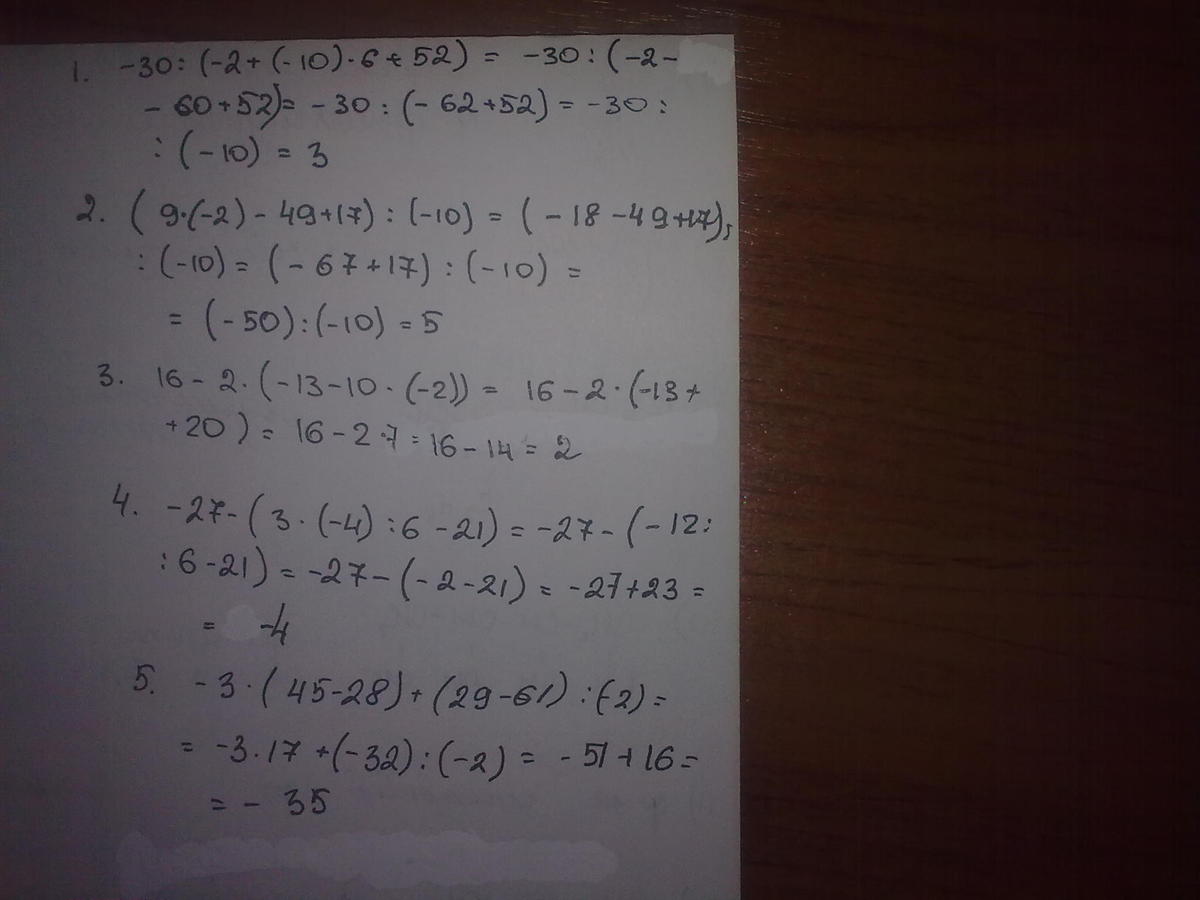 1. -30 : (-2 + (-10) · 6 + 52) = -30 : (-2 -
- 60 + 52) = -30 : (-62 + 52) = -30 :
: (-10) = 3
2. (9·(-2) - 49 + 17) : (-10) = (-18 - 49 + 17) :
: (-10) = (-67 + 17) : (-10) =
= (-50) : (-10) = 5
3. 16 - 2 · (-13 - 10 · (-2)) = 16 - 2 · (-13 +
+ 20) = 16 - 2 · 7 = 16 - 14 = 2
4. -27 - (3 · (-4) : 6 - 21) = -27 - (-12 :
: 6 - 21) = -27 - (-2 - 21) = -27 + 23 =
= -4
5. -3 · (45 - 28) + (29 - 61) : (-2) =
= -3 · 17 + (-32) : (-2) = -51 + 16 =
= -35